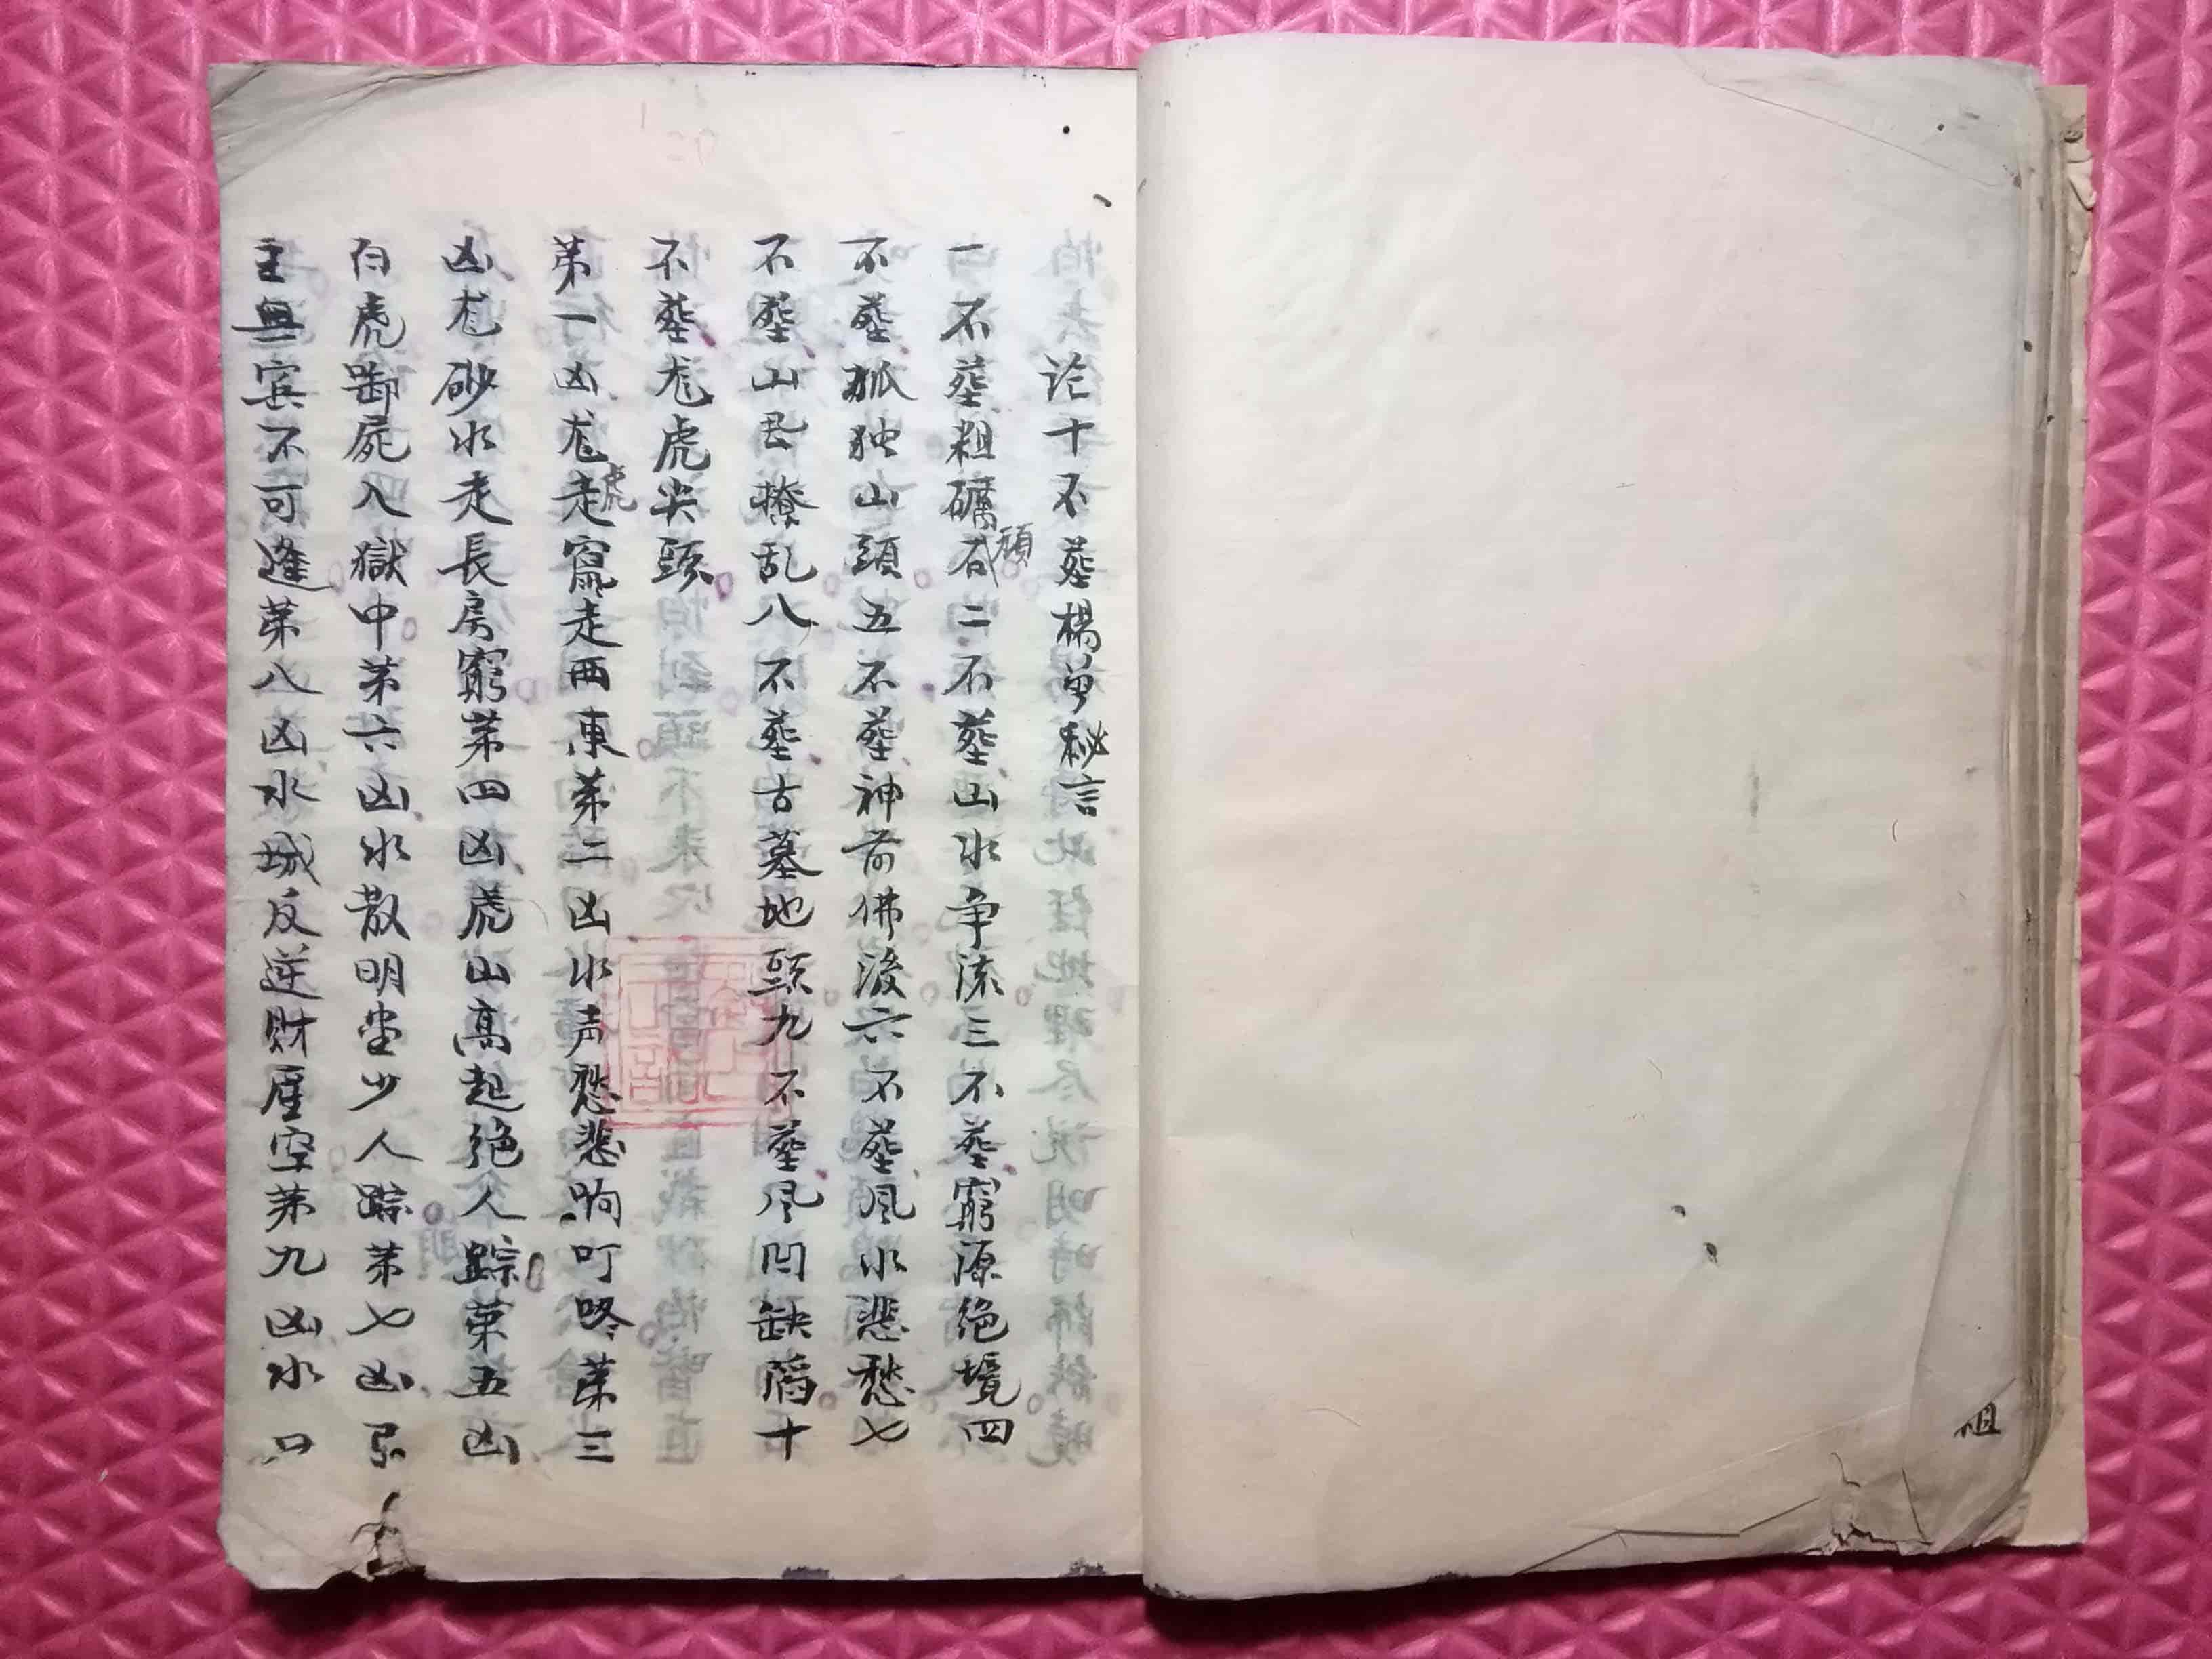 论十不葬楊曾秘言
一不葬粗礪頑石二不葬山水争流三不葬窮源绝境四
不葬孤独山頭五不葬神前佛後六不葬风水悲愁七
不葬山岂撩乱八不葬古墓地頭九不葬凤凹缺陷十
不葬尨虎尖頭
第一凶尨虎走窜走西東第二凶水声愁悲响叮咚第三
凶尨砂水走長房窮第四凶虎山高起绝人踪第五凶
白虎啣屍入獄中第六凶水散明堂少人踪第七凶
主無宾不可逢第八凶水城反逆财產空第九凶水口
祖